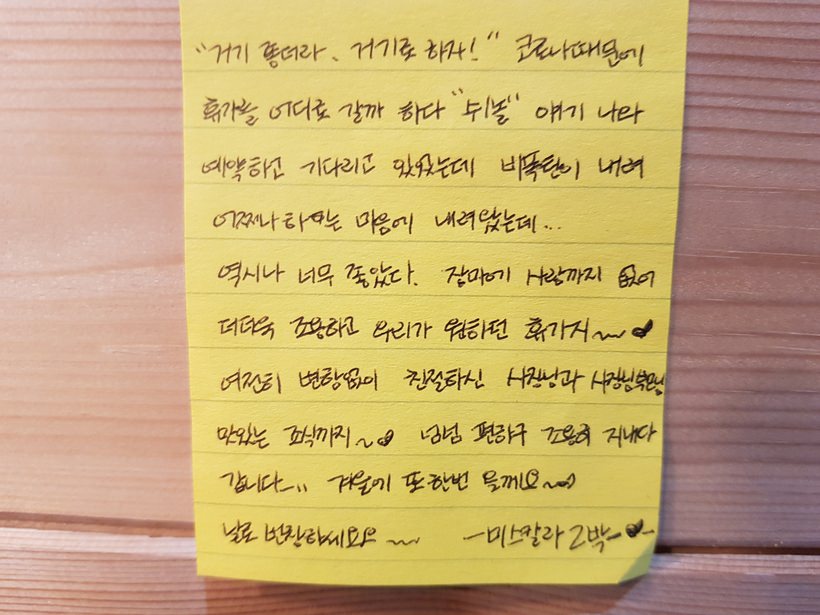 "거기 좋더라. 거기로 하자!" 코로나때문에
휴가를 어디로 갈까 하다 "쉬놀" 얘기 나와
예약하고 기다리고 있었는데 비폭탄이 내려
어쩌나하는 마음에 내려왔는데...
역시나 너무 좋았다. 장마에 사람까지 없어
더더욱 조용하고 우리가 원하던 휴가지~
여전히 변함없이 친절하신 사장님과 사장님부모님
맛있는 조식까지~ 넘넘 편하구 조용히 지내다
갑니다~.. 겨울에 또한번 올께요~
날로 번창하세요~ -미스칼라 2박-